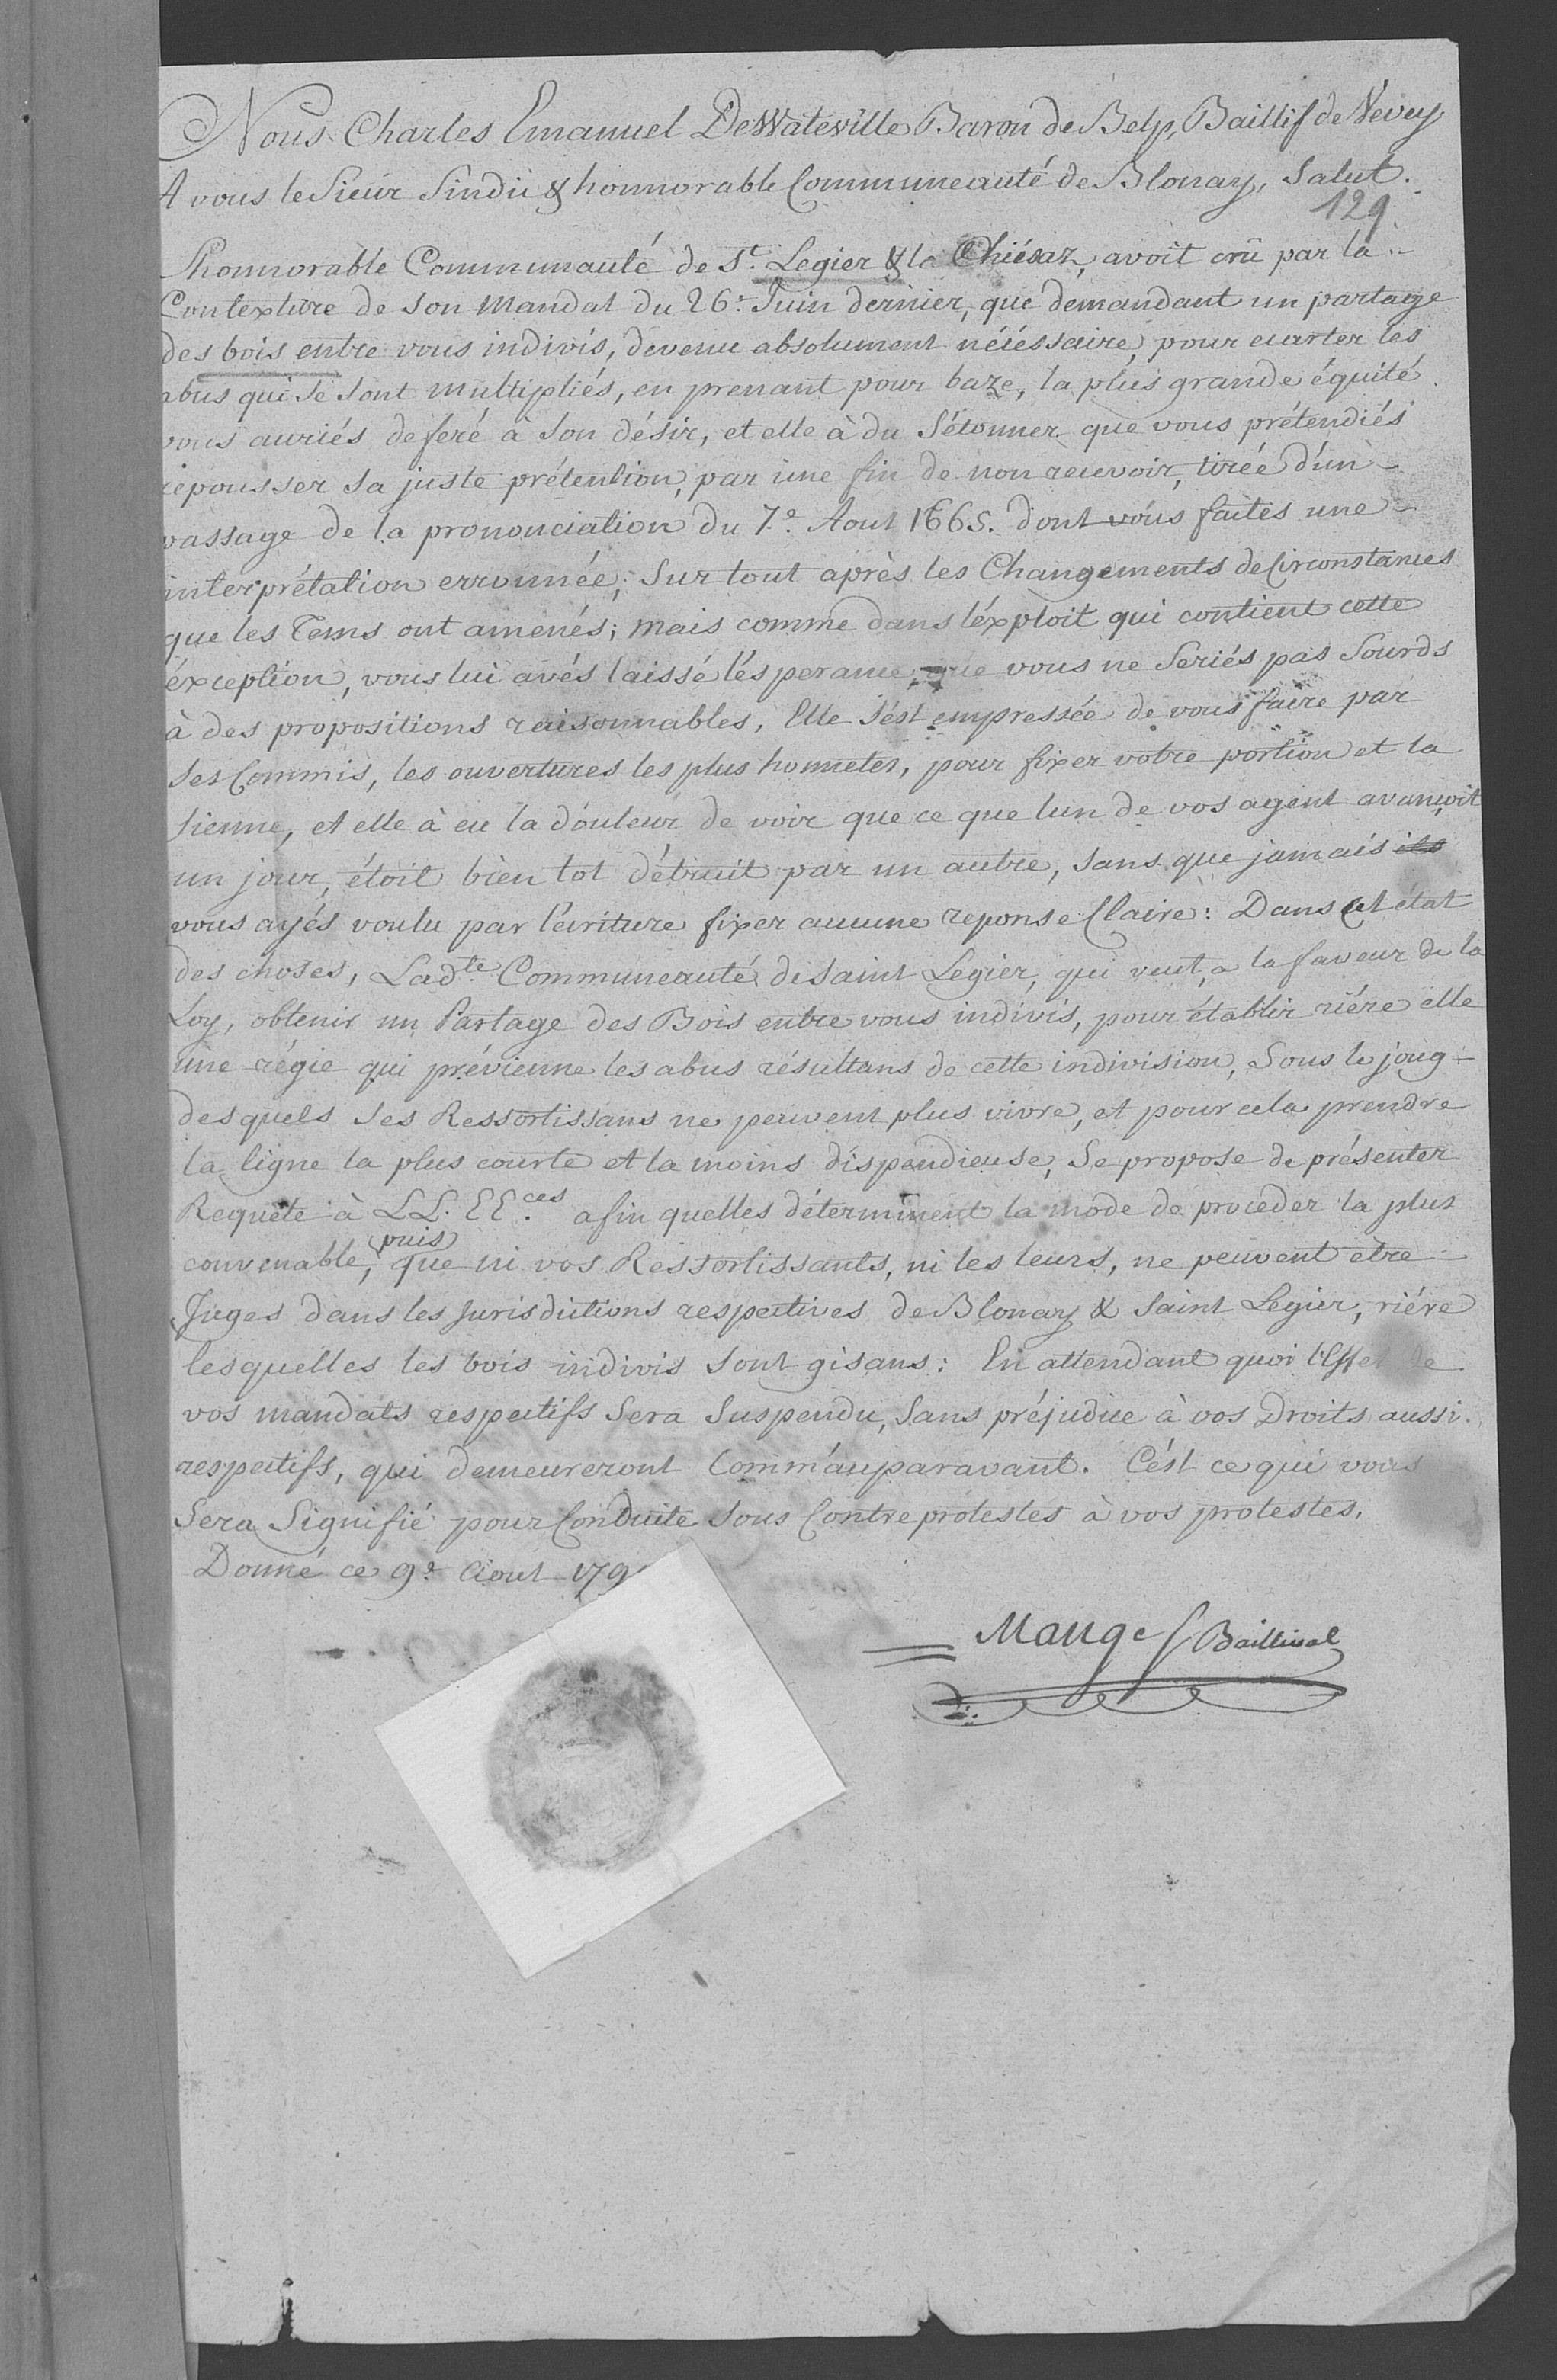 Nous Charles Emanuel DeWateville Baron de Belp, Baillif de Vevey
A vous le Sieur Sindic & honnorable Communeauté de Blonay, Salut.
129.
Lhonnorable Communauté de St. Legier & la Chiésaz, avoit crû par la
Contexture de son Mandat du 26e. Juin dernier, que demandant un partage
des bois entre vous indivis, devenu absolument nécéssaire, pour ecarter les
abus qui se sont multipliés, en prenant pour baze, la plus grande équité
vous auriés deferé à son désir, et elle à du Sétonner que vous prétendiés
repousser sa juste prétention, par une fin de non recevoir, tirée d'un
passage de la prononciation du 7e. Aout 1665. dont vous faites une
interprétation erronnée; Sur tout après les Changements de Circonstances
que les Tems ont amenés; mais comme dans léxploit qui contient cette
éxception, vous lui avés laissé lésperance, que vous ne Seriés pas Sourds
à des propositions raisonnables, Elle s'est empressée de vous faire par
ses Commis, les ouvertures les plus honnetes, pour fixer votre portion et la
sienne, et elle à eu la douleur de voir que ce que lun de vos agent avançoit
un jour, étoit bien tot détruit par un autre, sans que jamais ils
vous ayés voulu par lécriture fixer aucune reponse Claire: Dans cet état
des choses, Ladte. Communeauté de Saint Legier, qui veut, a la faveur de la
Loy, obtenir un Partage des Bois entre vous indivis, pour établir riére elle
une régie qui prévienne les abus résultans de cette indivision, Sous le joug
desquels ses Ressortissans ne peuvent plus vivre, et pour cela prendre
la ligne la plus courte et la moins dispendieuse, Se propose de présenter
Requete à LL. EE.ces afin quelles déterminent la mode de proceder la plus
convenable, puis que ni vos Ressortissants, ni les leurs, ne peuvent etre
Juges dans les Jurisdictions respectives de Blonay & Saint Legier, riére
lesquelles les bois indivis sont gisans: En attendant quoi l'Effet de
vos mandats respectifs Sera Suspendu, Sans préjudice à vos Droits aussi
respectifs, qui demeureront Comm'auparavant. C'ést ce qui vous
Sera Signifié pour Conduite sous Contreprotestes à vos protestes.
Donné ce 9e. Aout 179
Mange Baillival